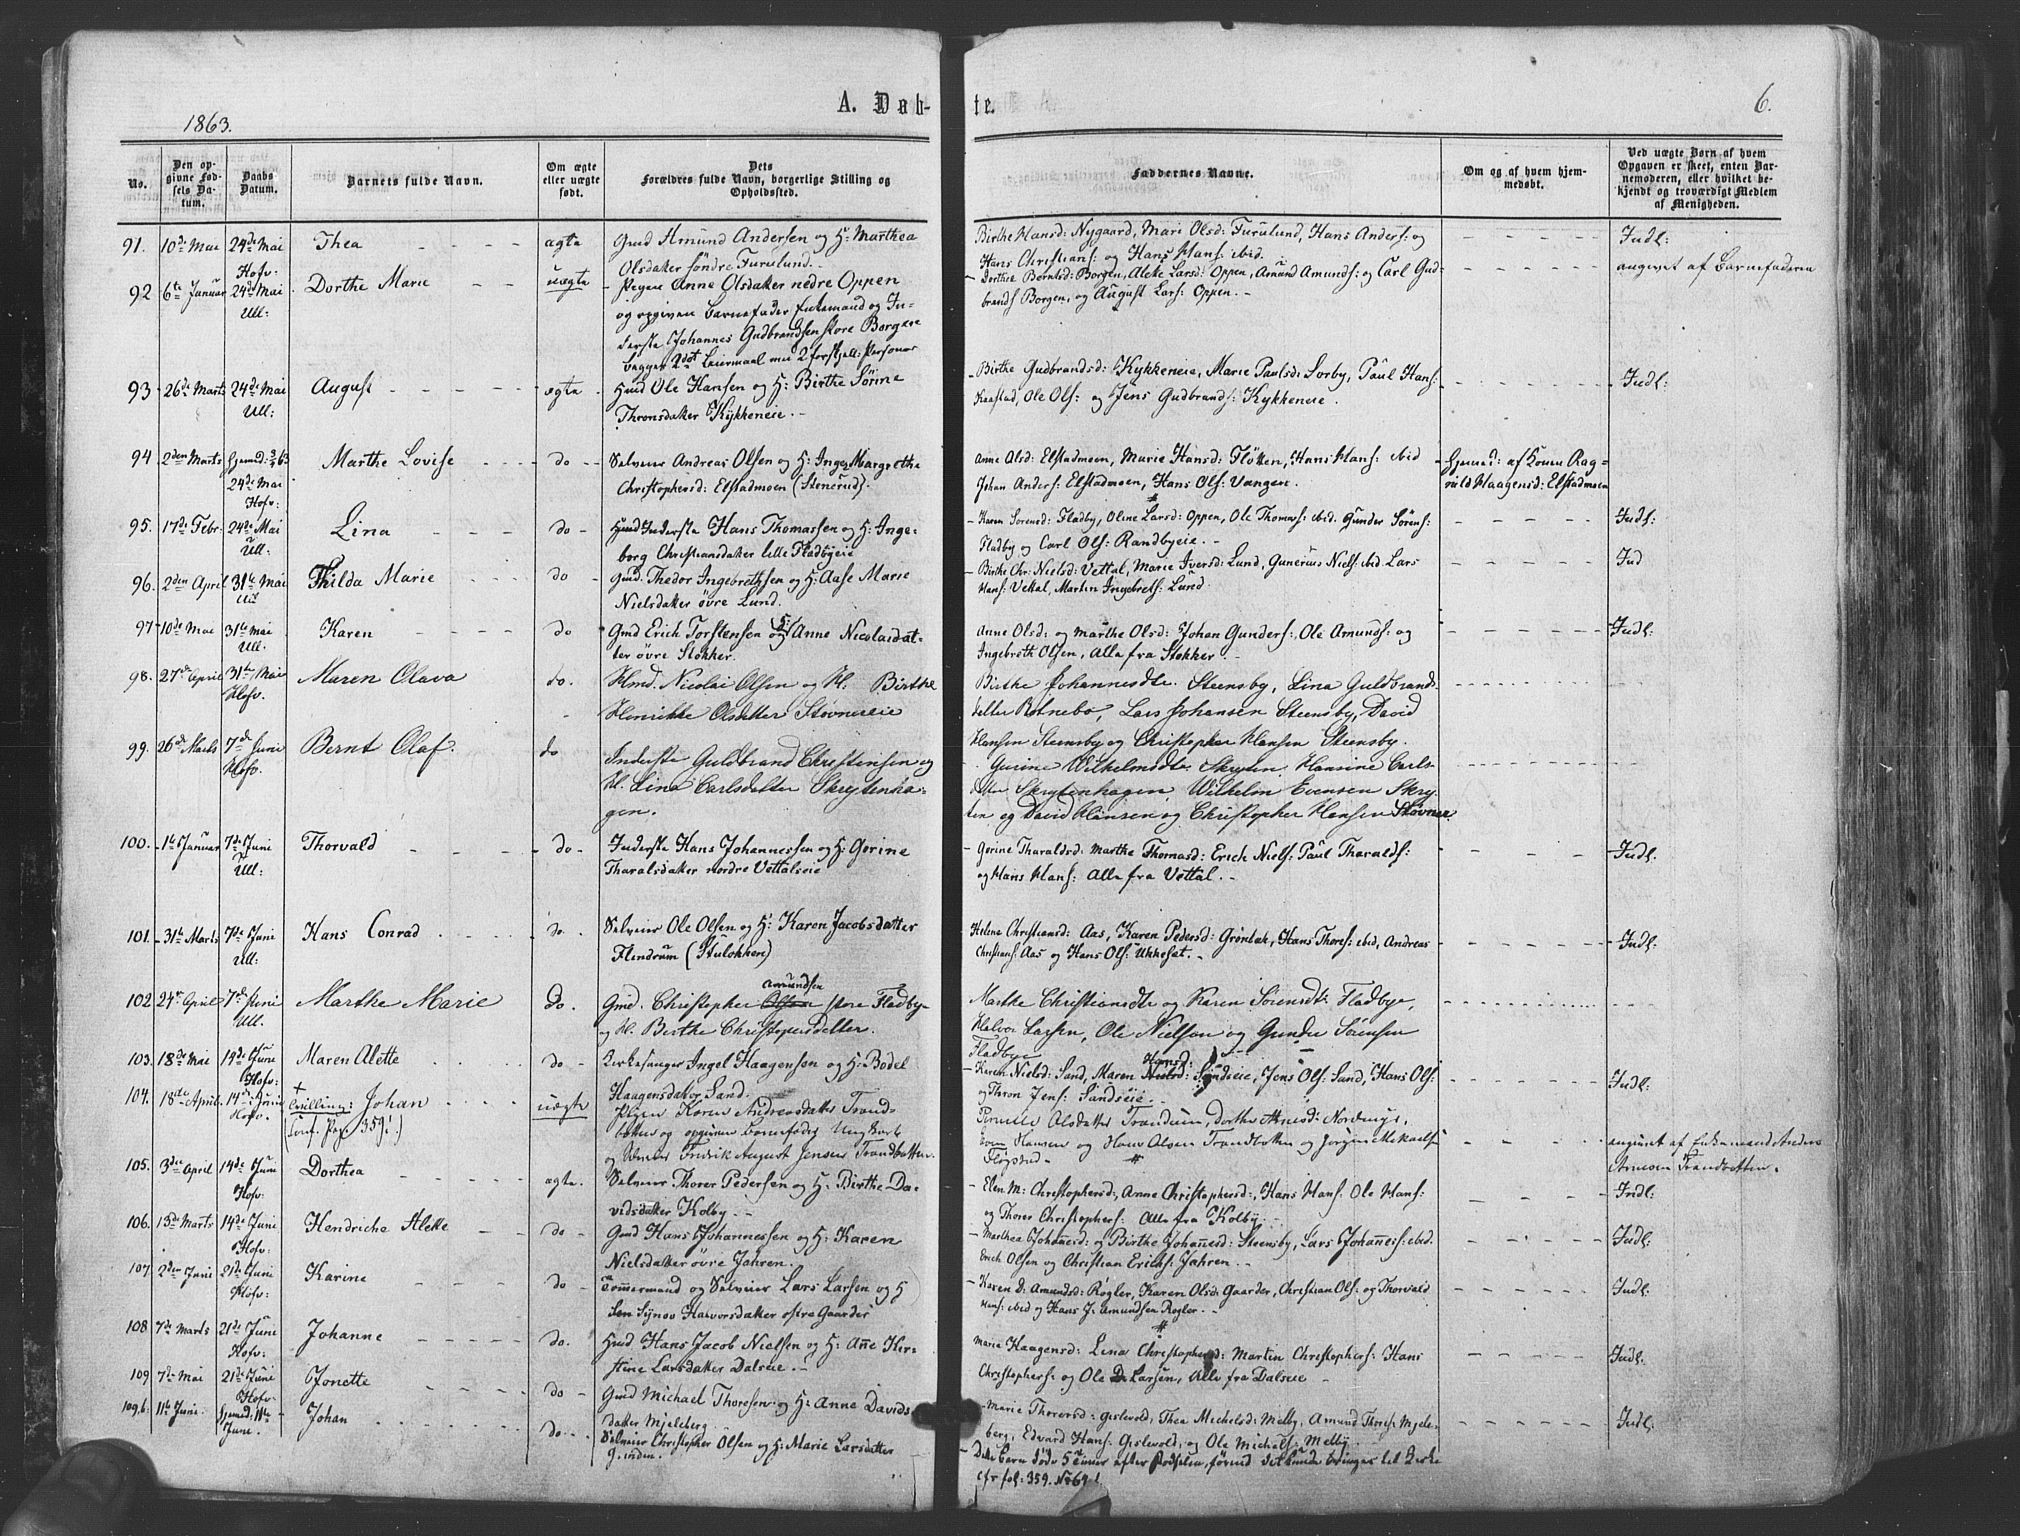 A. Døb-
te.
6.
1863.
No.
Den op-
givne Fød-
sels Da-
tum.
Daabs
Datum.
Barnets fulde Navn.
Om ægte
eller uægte
født.
Dets
Forældres fulde Navn, borgerlige Stilling og
Opholdssted.
Faddernes Navne.
Om og af hvem hjem-
medøbt.
Ved uægte Børn af hvem
Opgaven er skeet, enten Bar-
nemoderen, eller hvilket be-
kjendt og troværdigt Medlem
af Menigheden.
91. 10de Mai 24de Mai Hofv: Thea ægte
Gmd Amund Andersen og H: Marthea
Olsdatter søndre Furulund.
Birthe Hansd: Nygaard, Mari Olsd: Furulund, Hans Anders: og
Hans Christians: og Hans Hans: ibid.
Indl:
92 6te Januar 24de Mai Ull: Dorthe Marie uægte
Pigen Anne Olsdatter nedre Oppen
og opgiven Barnefader Enkemand og In-
derste Johannes Gudbrandsen store Borgen
begges 2det Leiermaal med 2 forskjell: Personer
Dorthe Berntsd: Borgen, Aleke Larsd: Oppen, Amund Amunds: og Carl Gud-
brands Borgen, og August Lars: Oppen.
angivet af Barnefaderen
93 26de Marts 24de Mai Ull: August ægte
Hmd Ole Hansen og H: Birthe Sønne
Thronsdatter Kykkeneie.
Birthe Gudbrandsd: Kykkeneie, Marie Paulsd: Sørby, Paul Hans:
Kaastad, Ole Ols: og Jens Gudbrands: Kykkeneie.
Indl:
94 2den Marts Hjemd: 3/3 63 24de Mai Hofv: Marthe Lovise do
Selveier Andreas Olsen og H: Inger Margrethe
Christophersd: Elstadmoen (Stenerud).
Anne Olsd: Elstadmoen, Marie Hansd: Fløtten, Hans Hans: ibid
Johan Anders: Elstadmoen, Hans Ols: Vangen.
Hjemd: af Konen Rag-
nild Haagensd: Elstadmoen
95. 17de Febr. 24de Mai Ull: Lina do
Hmd Inderste Hans Thomassen og H: Inge-
borg Christiansdatter lille Fladbyeie
Karen Sørensd: Fladby, Oline Larsd: Oppen, Ole Thomas: ibid. Gunder Sørens:
Fladby og Carl Ols: Randbyeie.
Indl:
96. 2den April 31te Mai Ull Thilda Marie do
Gmd. Thedor Ingebrethsen og H: Aase Marie
Nielsdatter øvre Lund.
Birthe Chr: Nielsd: Vettal, Marie Iversd: Lund, Gunerius Niels: ibid Lars
Hans: Vettal, Martin Ingebrets: Lund.
Ind
97 10de Mai 31te Mai Ull: Karen do
Gmd Erich Torstensen og H: Anne Nicolaidat-
ter øvre Stokker.
Anne Olsd: og Marthe Olsd: Johan Gunders:, Ole Amunds: og
Ingebreth Olsen, Alle fra Stokker.
Indl:
98. 27de April 31te Mai Hofv. Maren Olava do.
Hmd. Nicolai Olsen og H. Birthe
Henrikke Olsdatter Støvnereie
Birthe Johannesdtr. Steensby, Lina Guldbrands-
datter Botnebo, Lars Johansen Steensby, David
Hansen Steensby og Christopher Hansen Steensby.
99. 26de Marts 7de Juni Hofv. Bernt Olaf. do
Inderste Guldbrand Christensen og
H. Lina Carlsdatter Skrytenha-
gen.
Gurine Wilhelmsdtr. Skryten, Hansine Carls-
datter Skrytenhagen, Wilhelm Evensen Skry-
ten og David Hansen og Christopher Hansen Støvner.
100. 1te Januar 7de Juni Ull: Thorvald do
Inderste Hans Johannessen og H: Gorine
Tharalsdatter nordre Vettalseie
Gorine Tharaldsd: Marthe Thomasd: Erich Niels: Paul Tharalds:
og Hans Hans: Alle fra Vettal.
Indl:
101. 31te Marts 7de Juni Ull: Hans Conrad do.
Selveier Ole Olsen og H: Karen Jacobsdatter
Flendrum (Stulokken)
Helene Christiansd: Aas, Karen Pedersd: Grønbæk, Hans Thores: ibid, Andreas
Christians: Aas og Hans Ols: Ukkesat.
Indl:
102 24de April 7de Juni Ull. Marthe Marie Do.
Amundsen
Gmd. Christopher Olsen store Fladby
og H. Birthe Christophersdatter.
Marthe Christiansdtr og Karen Sørensdtr. Fladbye,
Halvor Larsen, Ole Nielsen og Gunder Sørensen
Fladbye
103. 18de Mai 14de Juni Hofv: Maren Alette do
Kirkesanger Ingel Haagensen og H: Bodel
Haagensdatter Sand.
Hansd:
Karen Nielsd: Sand, Maren Nielsd: Sandseie, Jens Ols: Sand, Hans Ols:
og Thron Jens: Sandseie.
Indl:
104. 18de April 14de Juni Hofv. + Tvilling: Johan uægte
(conf. Pag. 359!)
Pigen Karen Andreasdatter Trand-
batten og opgiven Barnefader Ungkarl
og Selveier Fredrik August Jensen Trandbatten.
Pernille Olsdatter Trandum, Dorthe Arnesd: Nordmyr,
Even Hansen og Hans Olsen Trandbatten og Jørgen Mikaels:
Fløgstad.
angivet af Enkemand Anders
Arnesen Trandbatten.
105. 3die April 14de Juni Hofv: Dorthea ægte.
Selveier Thorer Pedersen og H: Birthe Da-
vidsdatter Kolby.
Elen M: Christophersd:, Anne Christophersd:, Hans Hans: Ole Hans:
og Thorer Christophers: Alle fra Kolby.
Indl:
106. 13de Marts 14de Juni Hofv: Hendriche Alette do
Gmd Hans Johannessen og H: Karen
Nielsdatter øvre Jahren.
Marthea Johannesd: og Birthe Johannesd: Steensby, Lars Johanness: ibid.
Erich Olsen og Christian Erichs: Jahren.
Indl:
107. 2den Juni 21de Juni Hofv. Karine do
Tømmermand og Selveier Lars Larsen og H
Synøv Halvorsdatter østre Gaarder
Karen D: Amundsd: Røgler, Karen Olsd: Gaarder, Christian Ols: og Thorvald
Hans: ibid og Hans J. Amundsen Røgler.
Indl:
108 7de Marts 21de Juni Hofv: Johanne do.
Hmd Hans Jacob Nielsen og H: Anne Kir-
stine Larsdatter Dalseie.
Marie Haagensd: Lina Christophersd: Martin Christophers: Hans
Christophers: og Ole D. Larsen, Alle fra Dalseie
Indl:
109 7de Mai 21de Juni Hofv: Jonette do
Gmd Michael Thoresen og H: Anne Davids-
datter Mjeleberg.
Marie Thorersd: Gislevold, Thea Michelsd: Melby, Amund Thores: Mjele-
berg, Edvard Hans: Gislevold, og Ole Michels: Melby
Indl:
109,b. 11te Juni. Hjemd: 11te Juni. Johan do.
Selveier Christopher Olsen og H: Marie Larsdatter
Dette Barn døde 5 Timer efter Fødselen, førend det kunde bringes til Kirke
cfr fol: 359. No 64!